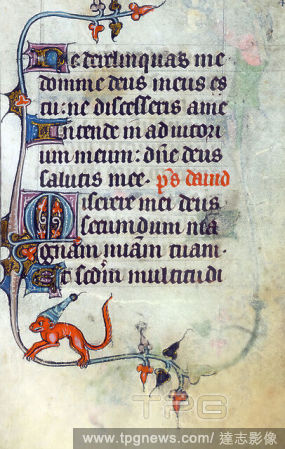 Ne derelinquas me
domine deus meus es
tu: ne discesseris a me
Intende in adiutori
um meum: dñe deus
salutis mee. p̄s dauid
Miserere mei deus
secundum ma
gnam miãm tuam.
Et scdm̄ multitudi
TPG
www.tpgnews.com/ 達志影像